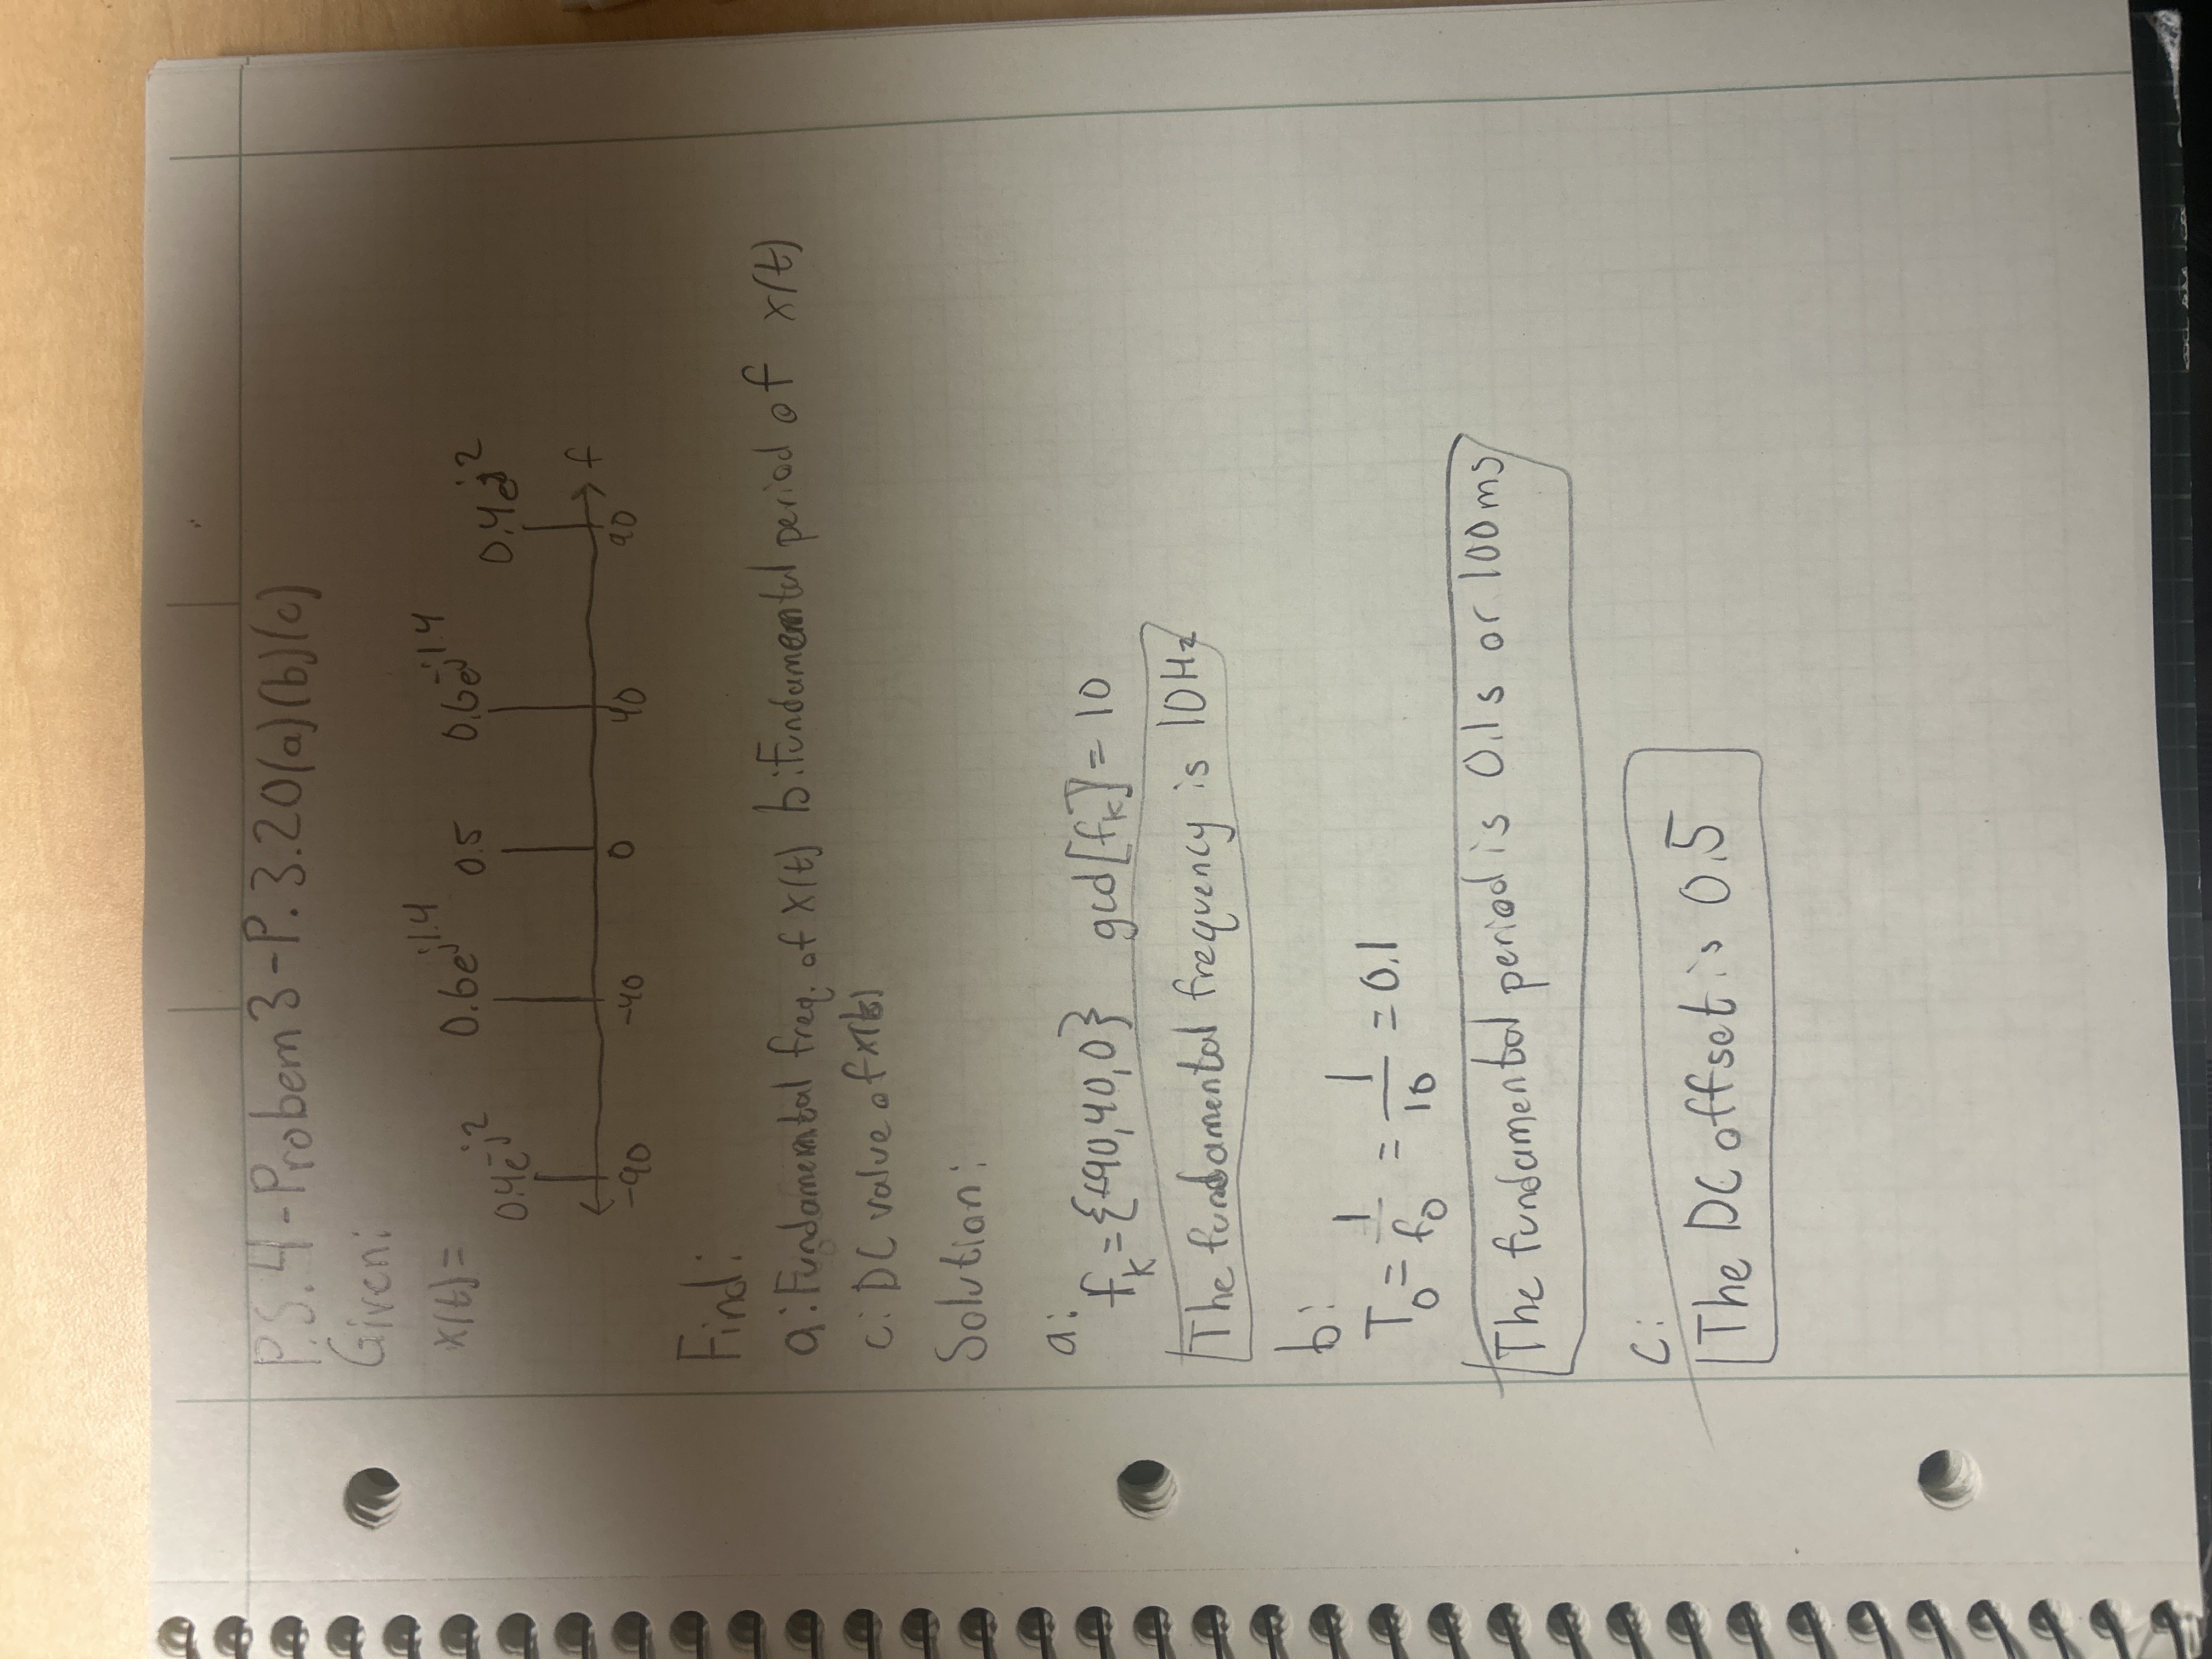 P.S.4-Probem 3-P.3.20(a)(b)(c)
Given:
x(t)=
0.4e^-j2 0.6e^j1.4 0.5 0.6e^-j1.4 0.4e^j2
f
-90 -40 0 40 90
Find:
a: Fundamemntal freq. of x(t) b: Fundamemntal period of x(t)
c: DC value of x(t)
Solution:
a:
f_k={±90,40,0} gcd[f_k]=10
The fundamental frequency is 10Hz
b:
T_0=1/f_0=1/10=0.1
The fundamental period is 0.1s or 100ms
c:
The DC offset is 0.5